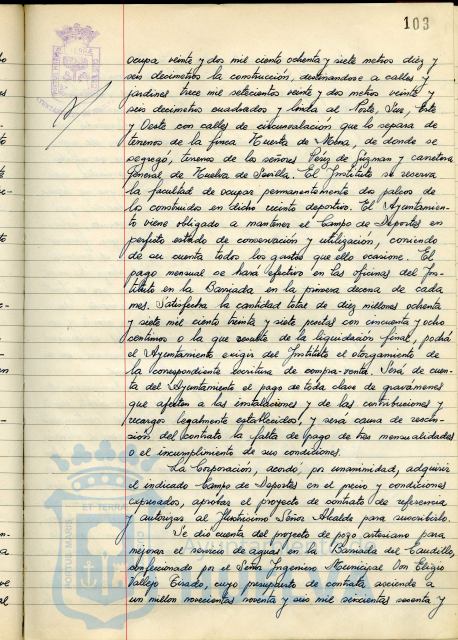 103
ocupa veinte y dos mil ciento ochenta y siete metros diez y
seis decimetros la construcción, destinandose a calles y
jardines trece mil setecientos veinte y dos metros veinte y
seis decimetros cuadrados y linda al Norte, Sur, Este
y Oeste con calles de circunvalación que lo separa de
terrenos de la finca Huerta de Mena, de donde se
segregó, terrenos de los señores Pérez de Guzman y carretera
General de Huelva de Sevilla. El Instituto se reserva
la facultad de ocupar permanentemente dos palcos de
los construidos en dicho recinto deportivo. El Ayuntamien-
to viene obligado a mantener el Campo de Deportes en
perfecto estado de conservación y utilización, corriendo
de su cuenta todos los gastos que ello ocasione. El
pago mensual se hará efectivo en las oficinas del Ins-
tituto en la Barriada en la primera decena de cada
mes. Satisfecha la cantidad total de diez millones ochenta
y siete mil ciento treinta y siete pesetas con cincuenta y ocho
centimos o la que resulte de la liquidación final, podrá
el Ayuntamiento exigir del Instituto el otorgamiento de
la correspondiente escritura de compra-venta. Será de cuen-
ta del Ayuntamiento el pago de toda clase de gravámenes
que afecten a las instalaciones y de las contribuciones y
recargos legalmente establecidos, y será causa de resci-
sión del contrato la falta de pago de tres mensualidades
o el incumplimiento de sus condiciones.
La Corporación, acordó, por unanimidad, adquirir
el indicado Campo de Deportes en el precio y condiciones
expresados, aprobar el proyecto de contrato de referencia
y autorizar al Ilustrisimo Señor Alcalde para suscribirlo.
Se dio cuenta del proyecto de pozo artesiano para
mejorar el servicio de aguas en la Barriada del Caudillo,
confeccionado por el Señor Ingeniero Municipal Don Eligio
Vallejo Tirado, cuyo presupuesto de contrata asciende a
un millon novecientos noventa y seis mil seiscientas sesenta y